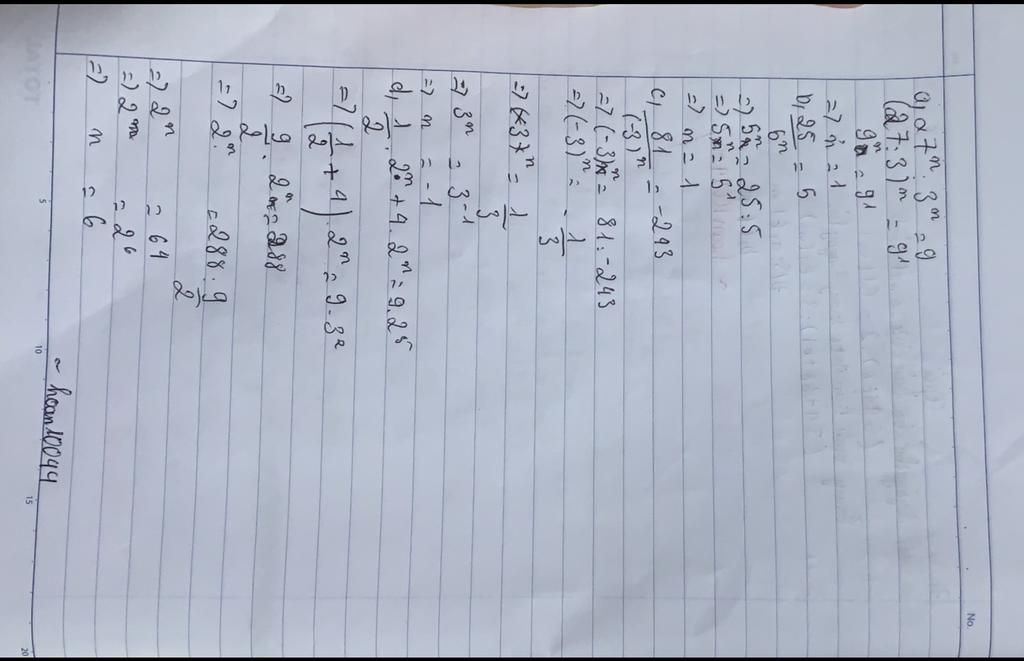 No.
a, 27ⁿ : 3ⁿ = 9
(27 : 3)ⁿ = 9¹
9ⁿ = 9¹
=> n = 1
b, 25/5ⁿ = 5
=> 5ⁿ = 25 : 5
=> 5ⁿ = 5¹
=> n = 1
c, 81/(-3)ⁿ = -243
=> (-3)ⁿ = 81 : -243
=> (-3)ⁿ = -1/3
=> 3ⁿ = 1/3
=> 3ⁿ = 3⁻¹
=> n = -1
d, 1/2 . 2ⁿ + 4 . 2ⁿ = 9 . 2⁵
=> (1/2 + 4) . 2ⁿ = 9 . 32
=> 9/2 . 2ⁿ = 288
=> 2ⁿ = 288 : 9/2
=> 2ⁿ = 64
=> 2ⁿ = 2⁶
=> n = 6
~ hoan10044
5 10 15 20